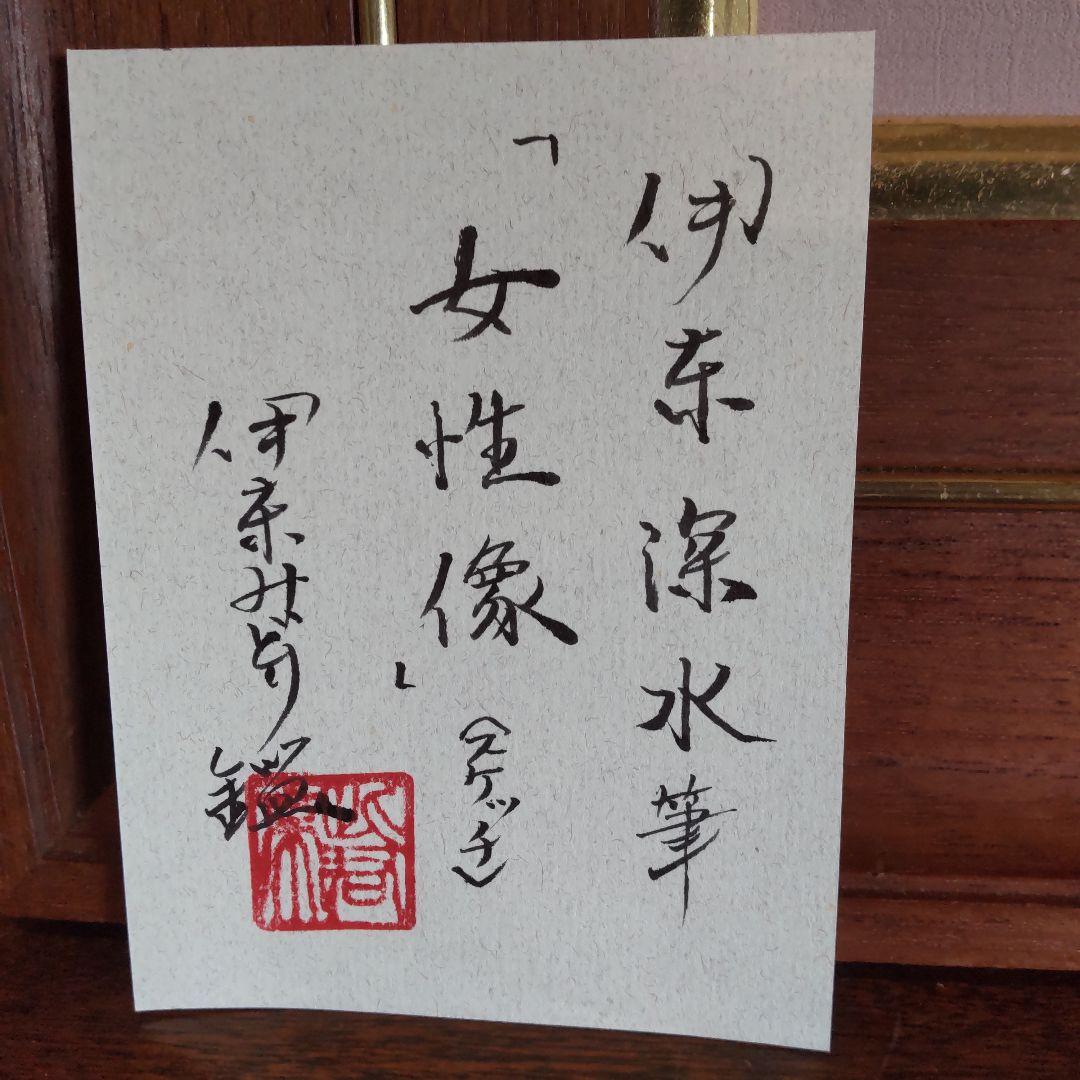 伊東深水筆
「女性像」（スケッチ）
伊東 鑑